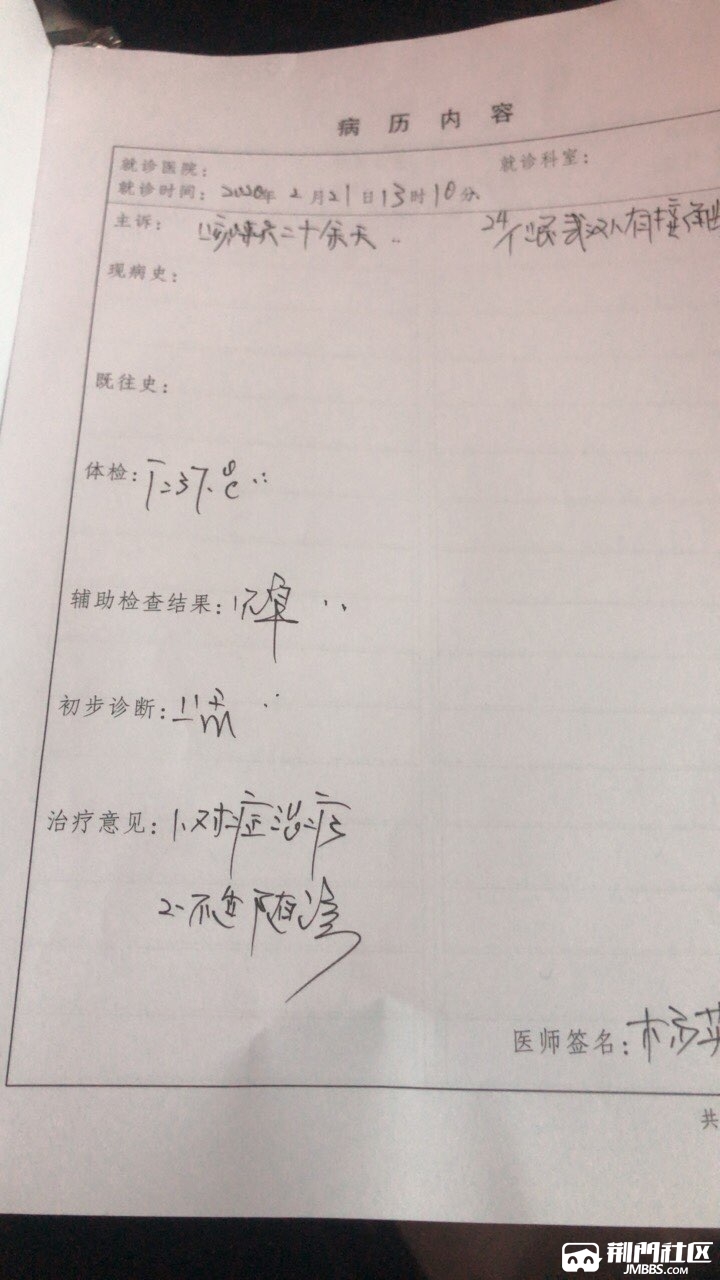 病历内容
就诊医院： 就诊科室：
就诊时间：2020年2月21日13时10分
主诉：咳嗽二十余天 24个
现病史：
既往史：
体检：T=37.℃
辅助检查结果：
初步诊断：
治疗意见：1、对症治疗
2、不适随诊
医师签名：杨英
共
荆門社区
JMBBS.COM